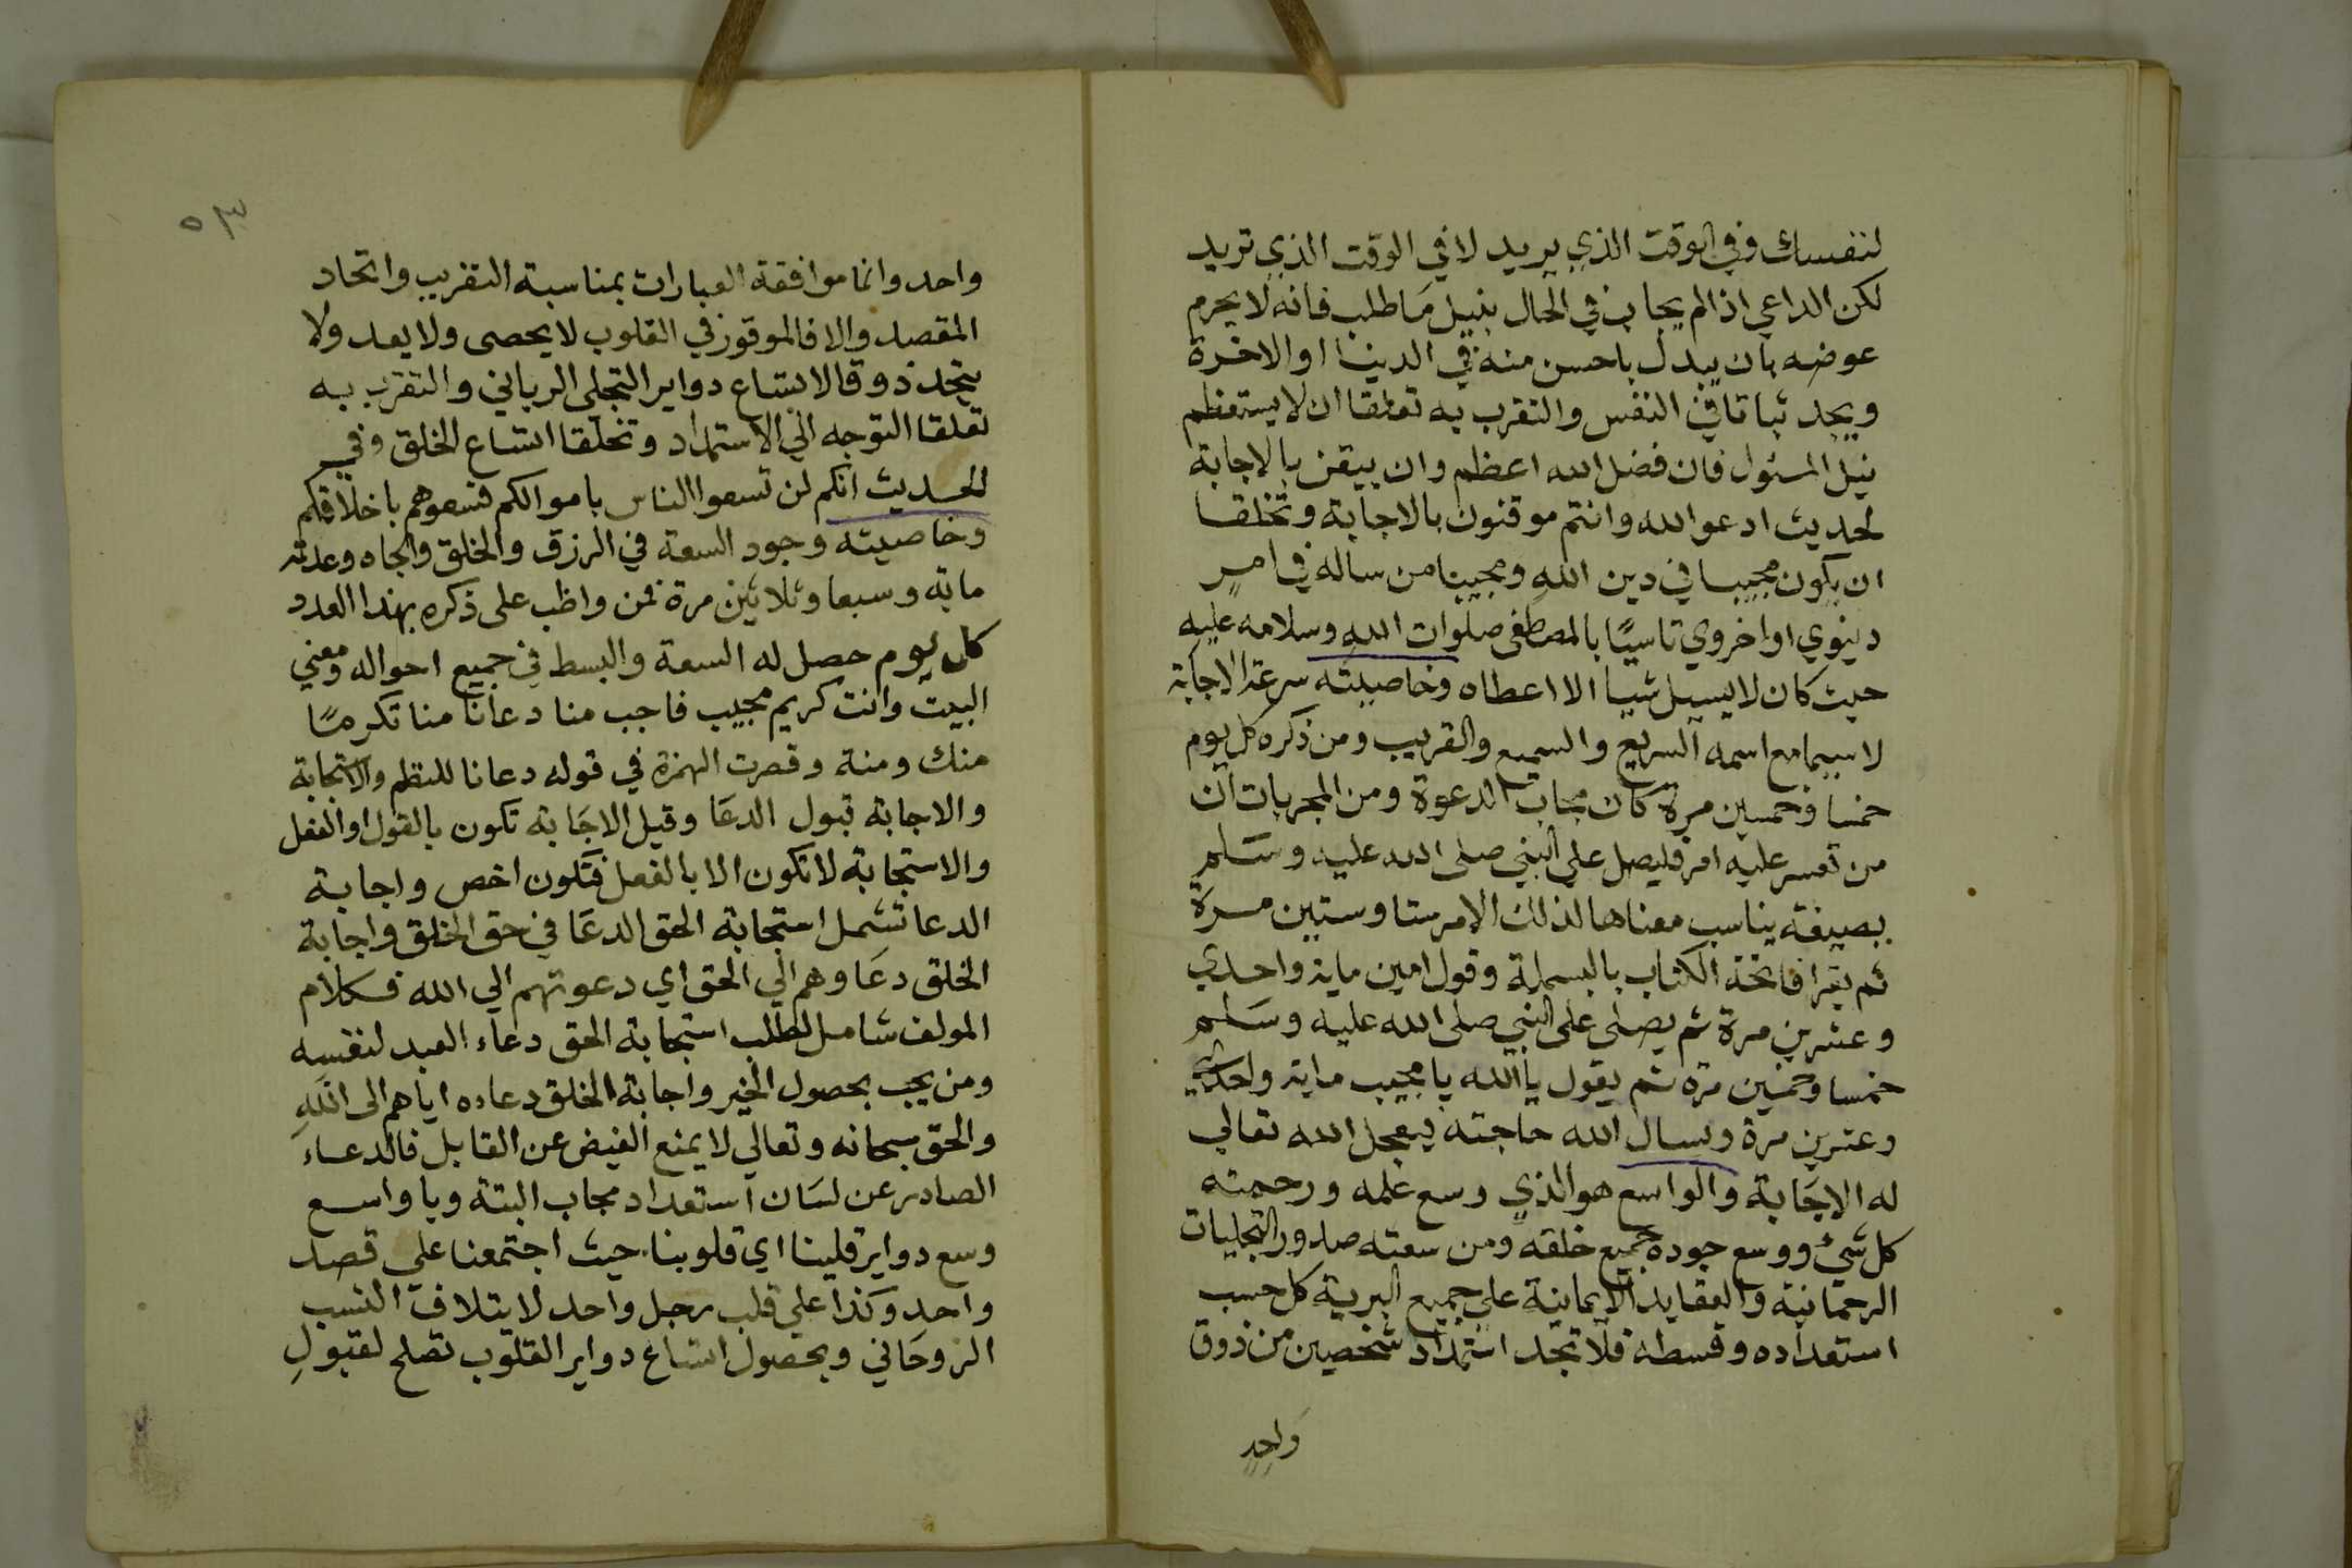 لنفسك وفي الوقت الذي يريد لا في الوقت الذي تريد
لكن الداعي اذا لم يجاب في الحال بنيل ما طلب فانه لا يحرم
عوضه بان يبدل باحسن منه في الدينا او الاخرة
ويجد ثباتا في النفس والتقرب به تعلقا ان لا يستعظم
نيل المسئول فان فضل الله اعظم وان ييقن بالاجابة
لحديث ادعوا الله وانتم موقنون بالاجابة وتخلقا
ان يكون مجيبا في دين الله ومجيبا من ساله في امر
دينوي او اخروي تاسيًا بالمصطفى صلوات الله وسلامه عليه
حيث كان لا يسيل شيا الا اعطاه وخاصيته سرعة الاجابة
لا سيما مع اسمه السريع والسميع والقريب ومن ذكره كل يوم
خمسا وخمسين مرة كان مجاب الدعوة ومن المجربات ان
من تعسر عليه امر فليصل على النبي صلى الله عليه وسلم
بصيغة يناسب معناها لذلك الامر ستا وستين مرة
ثم يقرا فاتحة الكتاب بالبسملة وقول امين ماية واحدي
وعشرين مرة ثم يصلى على النبي صلى الله عليه وسلم
خمسا وخمسين مرة ثم يقول يا الله يا مجيب ماية واحدي
وعشرين مرة ويسال الله حاجته فيعجل الله تعالي
له الاجابة والواسع هو الذي وسع علمه ورحمته
كل شيء ووسع جوده جميع خلقه ومن سعته صدور التجليات
الرحمانية والعقايد الايمانية على جميع البرية كل حسب
استعداده وقسطه فلا تجد استمداد شخصين من ذوق
واحد
٥٣
واحد وانما موافقة العبارات بمناسبة التقريب واتحاد
المقصد والا فالموقور في القلوب لا يحصى ولا يعد ولا
يتحد ذوقا لاتساع دواير التجلي الرباني والتقرب به
تعلقا التوجه الي الاستمداد وتخلقا اتساع الخلق وفي
الحديث انكم لن تسعوا الناس باموالكم فسعوهم باخلاقكم
وخاصيته وجود السعة في الرزق والخلق والجاه وعدته
ماية وسبعا وثلاثين مرة فمن واظب على ذكره بهذا العدد
كل يوم حصل له السعة والبسط في جميع احواله ومعني
البيت وانت كريم مجيب فاجب منا دعانا منا تكرمًا
منك ومنة وقصرت الهمزة في قوله دعانا للنظم والاستجابة
والاجابة قبول الدعا وقيل الاجابة تكون بالقول او الفعل
والاستجابة لا تكون الا بالفعل فتكون اخص واجابة
الدعا تشمل استجابة الحق الدعا في حق الخلق واجابة
الخلق دعاوهم الي الحق اي دعوتهم الي الله فكلام
المولف شامل لطلب استجابة الحق دعاء العبد لنفسه
ومن يحب بحصول الخير واجابة الخلق دعاءه اياهم الى الله
والحق سبحانه وتعالي لا يمنع الفيض عن القابل فالدعاء
الصادر عن لسان استعداد مجاب البتة ويا واسع
وسع دواير قلبنا اي قلوبنا حيث اجتمعنا على قصد
واحد وكذا على قلب رجل واحد لايتلاف النسب
الروحاني وبحصول اتساع دواير القلوب تصلح لقبول